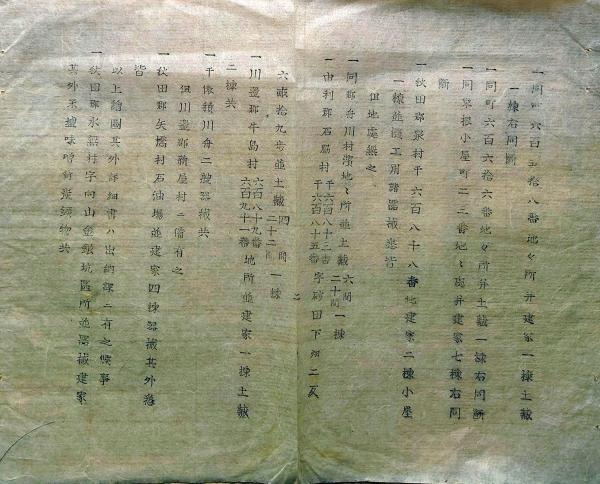 一同町六百五拾八番地〻所并建家一棟土蔵
一棟右同断
一同町六百六拾六番地〻所并土蔵一棟右同断
一同 根小屋町二三番地〻所并建家七棟右同
断
一秋田郡泉村千六百八十八番地建家二棟小屋
一棟並機工用諸器械悉皆
但地所無之
一同郡舟川村濱地〻所並土蔵 六間 二十間 一棟
一由利郡石脇村 千六百八十三番 千六百八十五番 字砂田下畑二反
六畝拾九歩並土蔵 四間 二十二間 一棟
一川邊郡牛島村 六百八十九番 六百九十一番 地所並建家一棟土蔵
二棟共
一千像積川舟二艘器械共
但川邊郡新屋村ニ備有之
一秋田郡矢橋村石油場並建家四棟器械其外悉
皆
以上繪圖其外詳細書ハ出納課ニ有之候事
一秋田郡水無村字向山金銀坑區所並器械建家
其外不殘味噌 物共